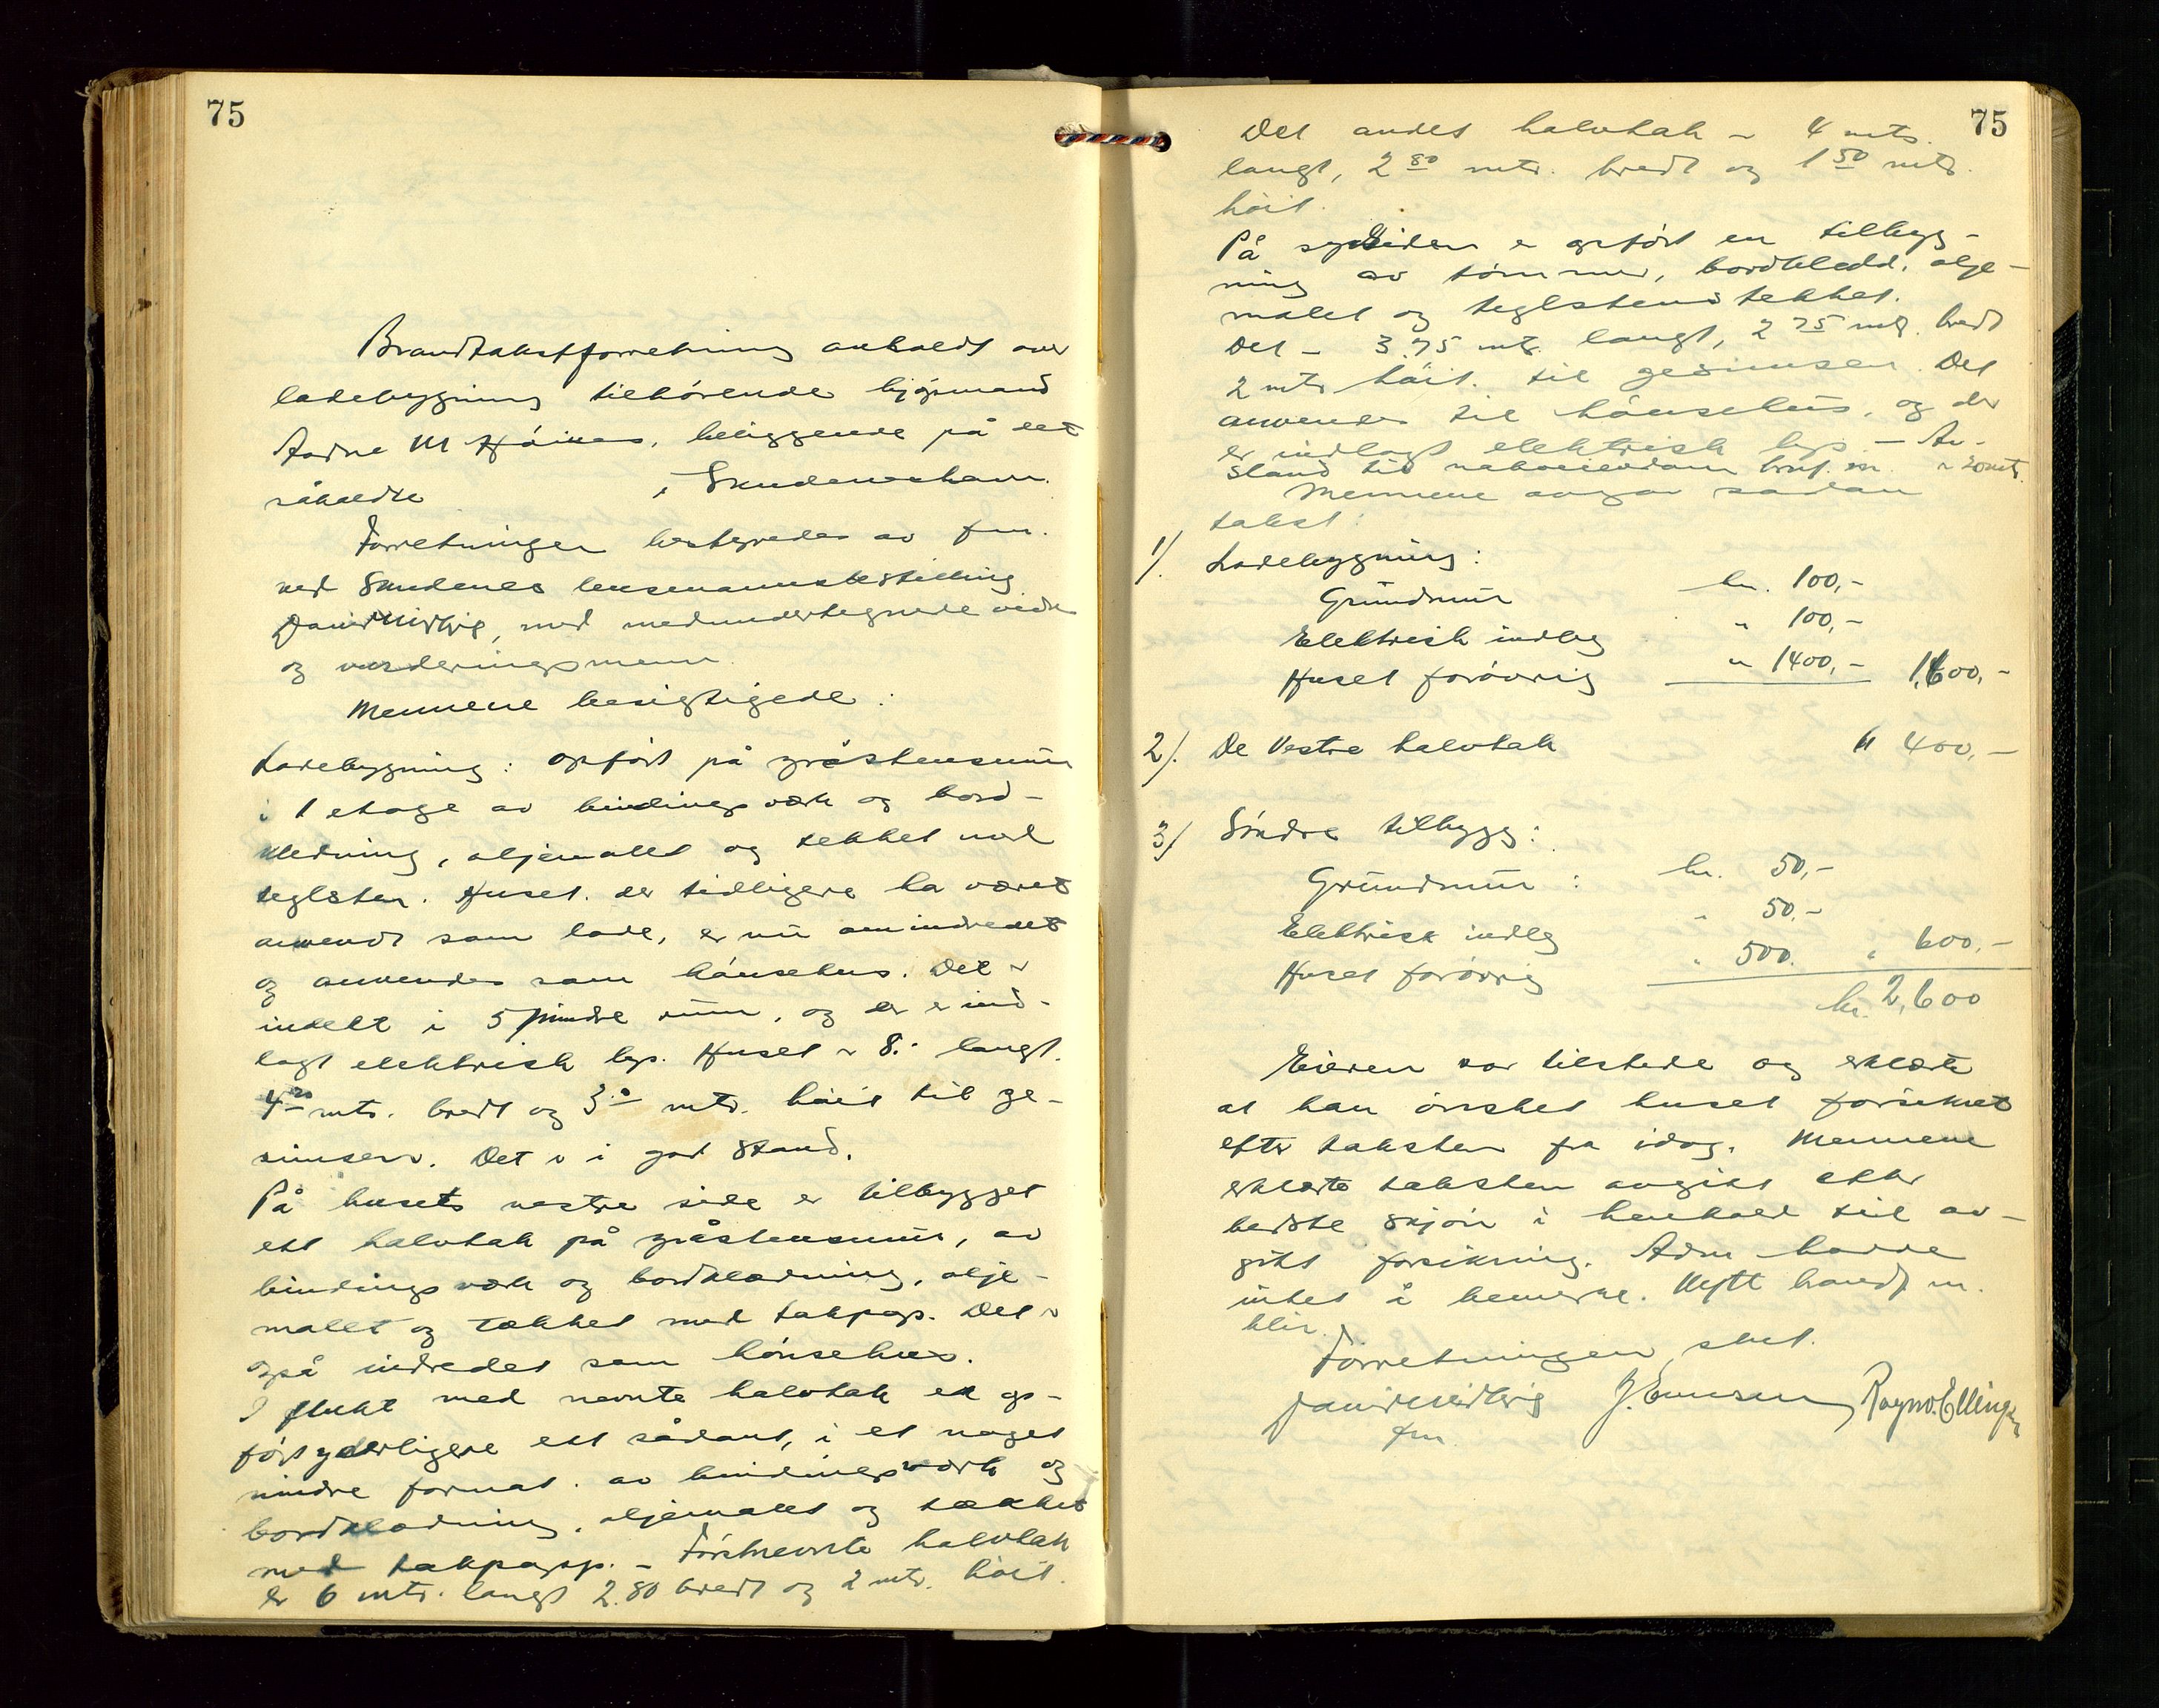 75
Brandtakstforretning avholdt over
ladebygning tilhörende kjöpmand
Andre M , beliggende på det
såkaldte i Skudeneshavn.
Forretningen bestyredes av fm.
ved Skudenes lensmannsbestilling
David Midtvig, med medundertegnede vidn
og vurderingsmenn.
Mennene besigtigede:
Ladebygning: opfört på gråstensmur
i 1 etage av bindingsverk og bord-
kledning, oljemalet og tekket med
teglsten. Huset, der tidligere ha været
anvendt som lade, er nu omindredet
og anvendes som hönsehus. Det er
indelt i 5 mindre rum, og der er ind-
lagt elektrisk lys. Huset er 8.- langt.
4 20 mtr. bredt og 3.0 mtr. höit til ge-
simsen. Det er i god stand.
På husets vestre side er tilbygget
ett halvtak på gråstensmur, av
bindingsverk og bordklædning, olje-
malet og tækket med takpap. Det er
også indredet som hönsehus.
I flukt med nevnte halvtak er op-
fört yderligere ett sådant, i et noget
mindre format. av bindingsverk og
bordklædning, oljemalet og tækket
med takpapp. - Förstnevnte halvtak
er 6 mtr. langt 2.80 bredt og 2 mtr. höit.
75
Det andet halvtak er 4 mtr.
langt, 2 80 mtr. bredt og 1 50 mtr.
höit.
På sydsiden er opfört en tilbyg-
ning av tömmer, bordkledd, olje-
malet og teglstenstekket.
Det er 3.75 mtr. langt, 2 75 mtr. bredt
2 mtr höit. til gesimsen. Det
anvendes til hönsehus, og der
er indlagt elektrisk lys - Av-
stand til naboeiendom er 20 mtr.
Mennene avgav sådan
takst:
1/. Ladebygning:
Grundmur kr. 100,-
Elektrisk indleg " 100,-
Huset forövrig " 1400,- 1,600,-
2/. De Vestre halvtak " 400,-
3/ Söndre tilbygg:
Grundmur: kr. 50,-
Elektrisk indleg " 50,-
Huset forövrig " 500. " 600,-
kr. 2,600
Eieren var tilstede og erklærte
at han önsket huset forsikret
efter taksten fra idag. Mennene
erklærte taksten avgitt efter
bedste skjön i henhold til av-
gitt forsikring. Adm hadde
intet å bemerke. Utskr
blir.
Forretningen slut.
David Midtvig J. Enersen Ragnv. Ellingsen
fm.